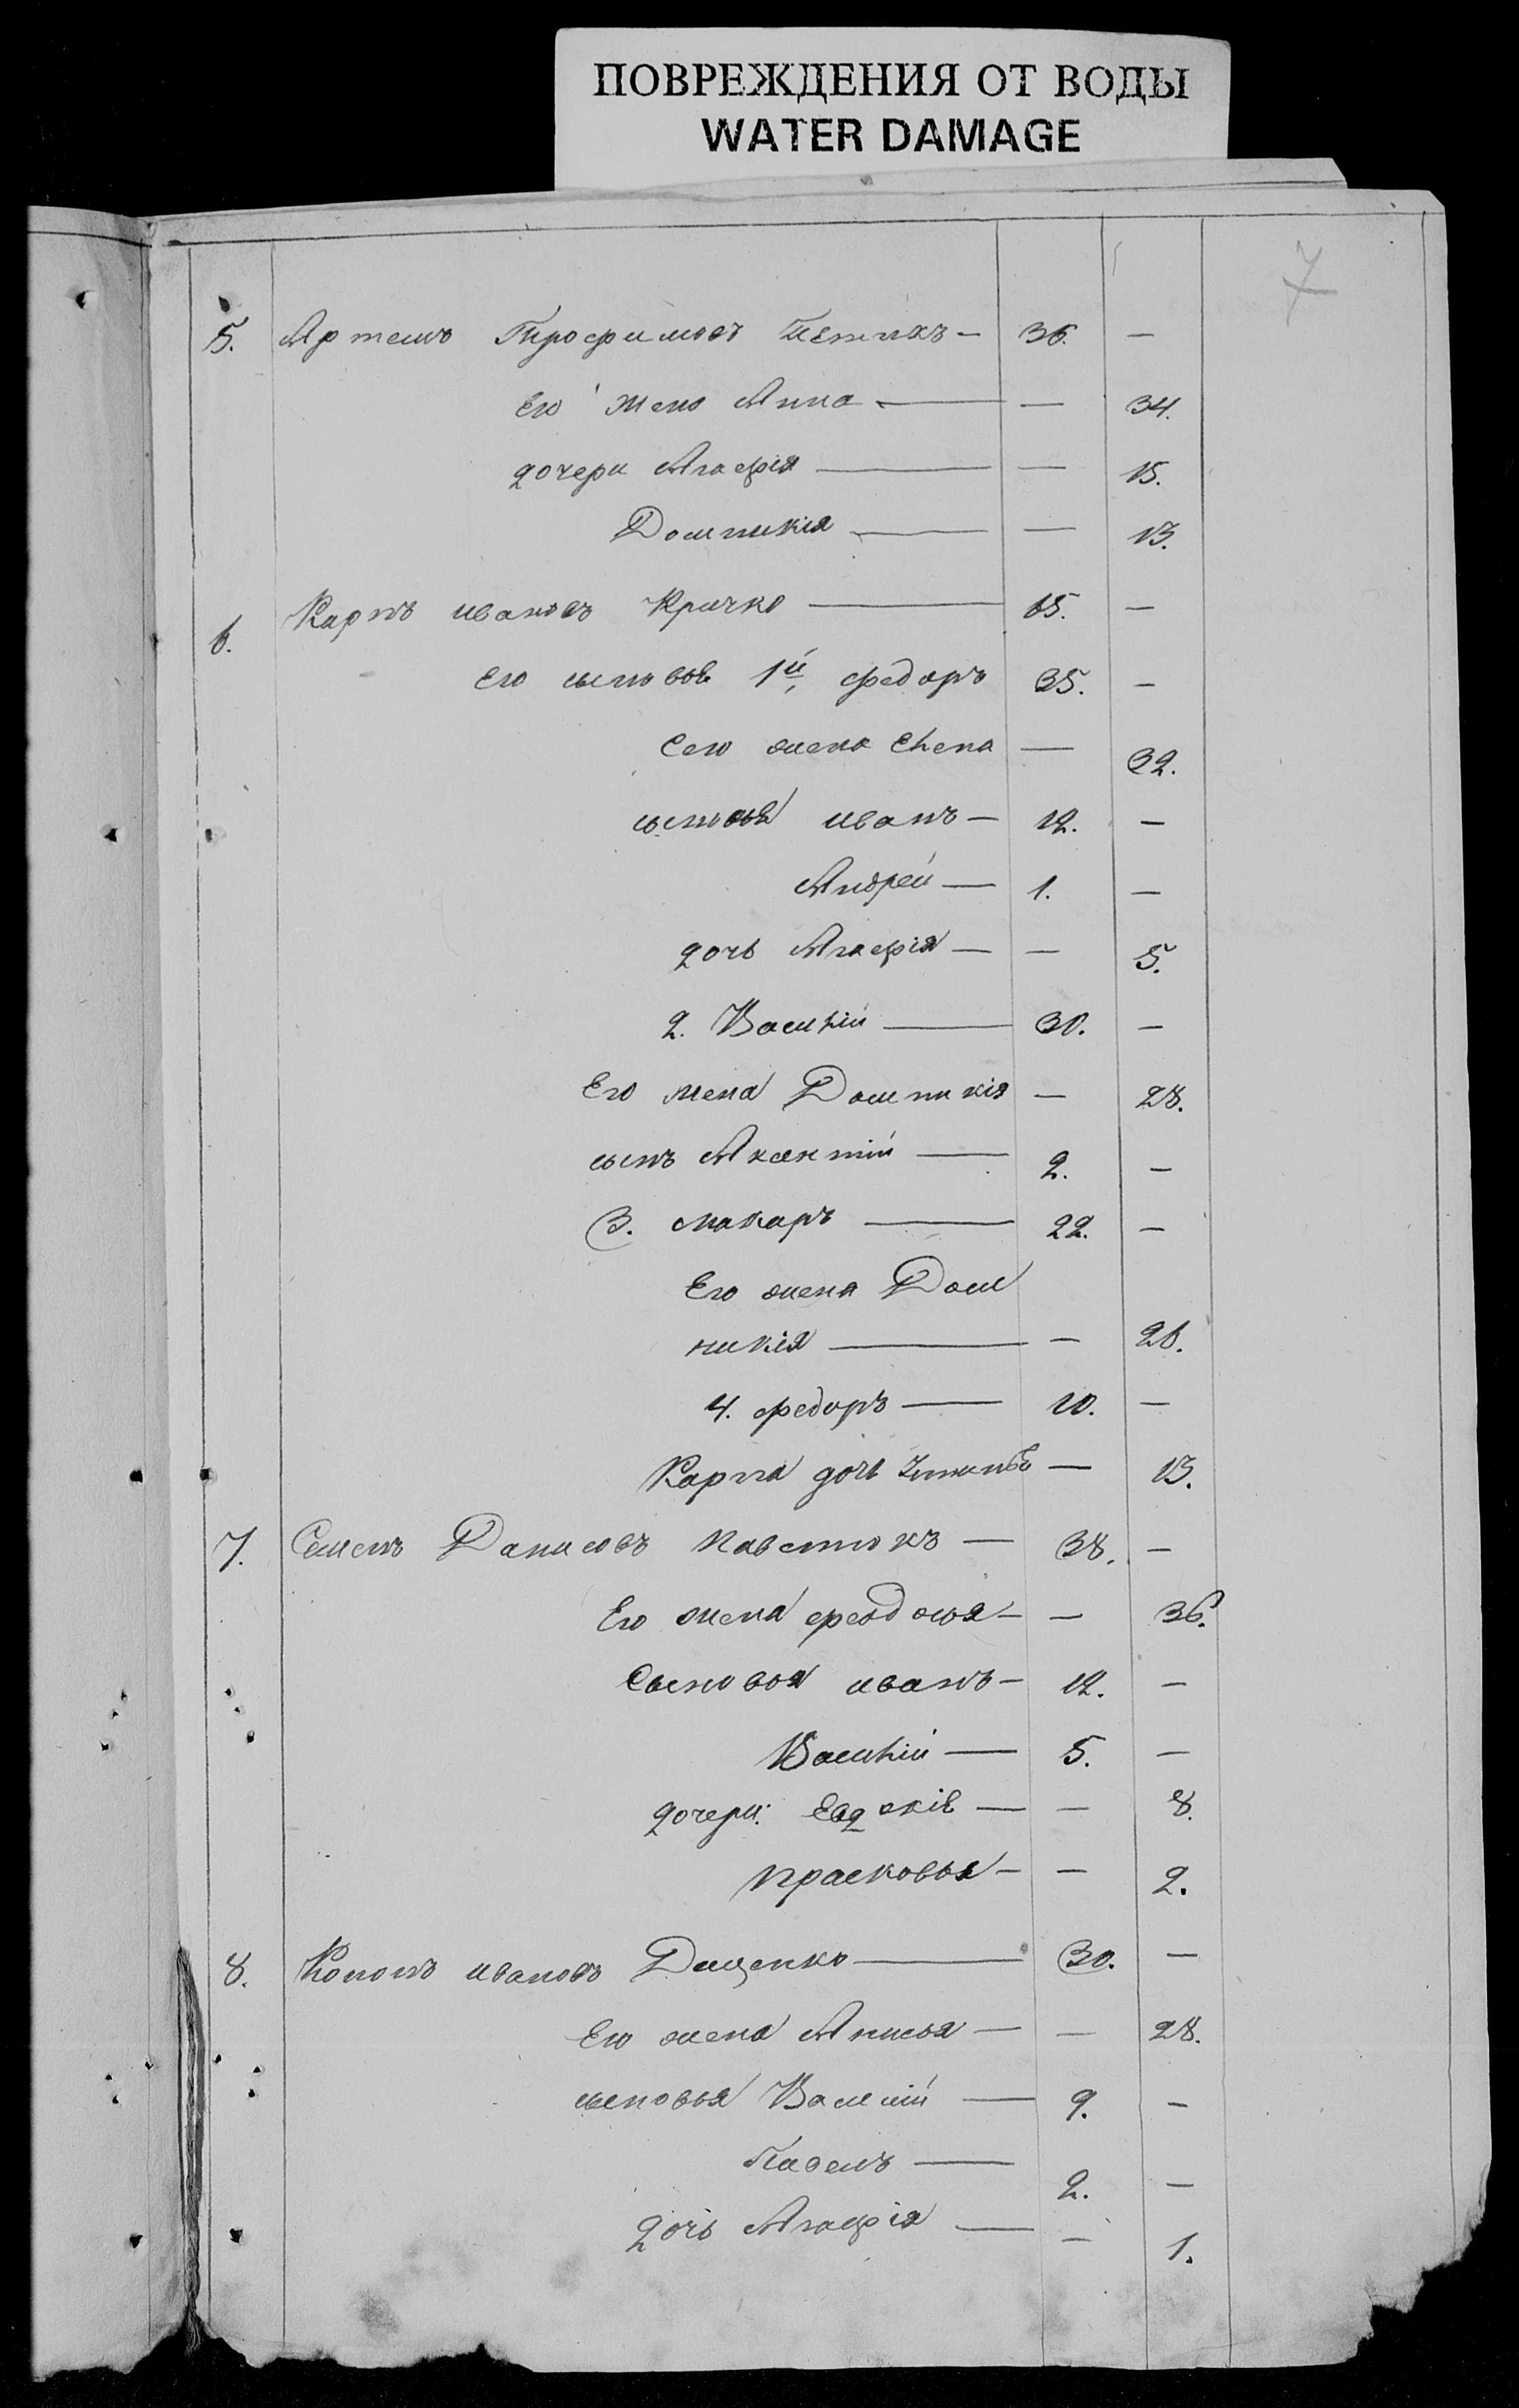 ПОВРЕЖДЕНИЯ ОТ ВОДЫ
WATER DAMAGE
7
5. Артемъ Трофимовъ — 36. —
Его жена Анна — — 34.
дочери Агафія — — 15.
Домникія — — 13.
6. Карпъ Ивановъ Кричко — 65. —
Его сыновья 1й, Федоръ 35. —
Сего жена Елена — 32.
сыновья Иванъ — 12. —
Андрей — 1. —
дочь Агафія — — 5.
2. Василій — 30. —
Его жена Домникія — 28.
сынъ 2. —
3. Макаръ — 22. —
Его жена Дом
никія — — 26.
4. Федоръ — 10. —
Карпа дочь — 13.
7. Семенъ Данисовъ — 38. —
Его жена Феодосья — — 36.
Сыновья Иванъ — 12. —
Василій — 5. —
дочери: — — 8.
Прасковья — — 2.
8. Кононъ Ивановъ Дищенко — 30. —
Его жена Анисья — — 28.
сыновья Василій — 9. —
Павелъ — 2. —
дочь Агафія — — 1.